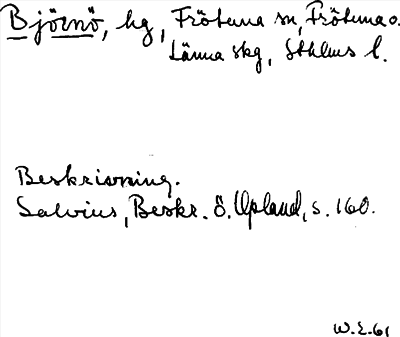 Björnö, hg, Frötuna sn, Frötuna o.
Länna skg, Sthlms l.
Beskrivning.
Salvius, Beskr. ö. Upland, s. 160.
W.E.61